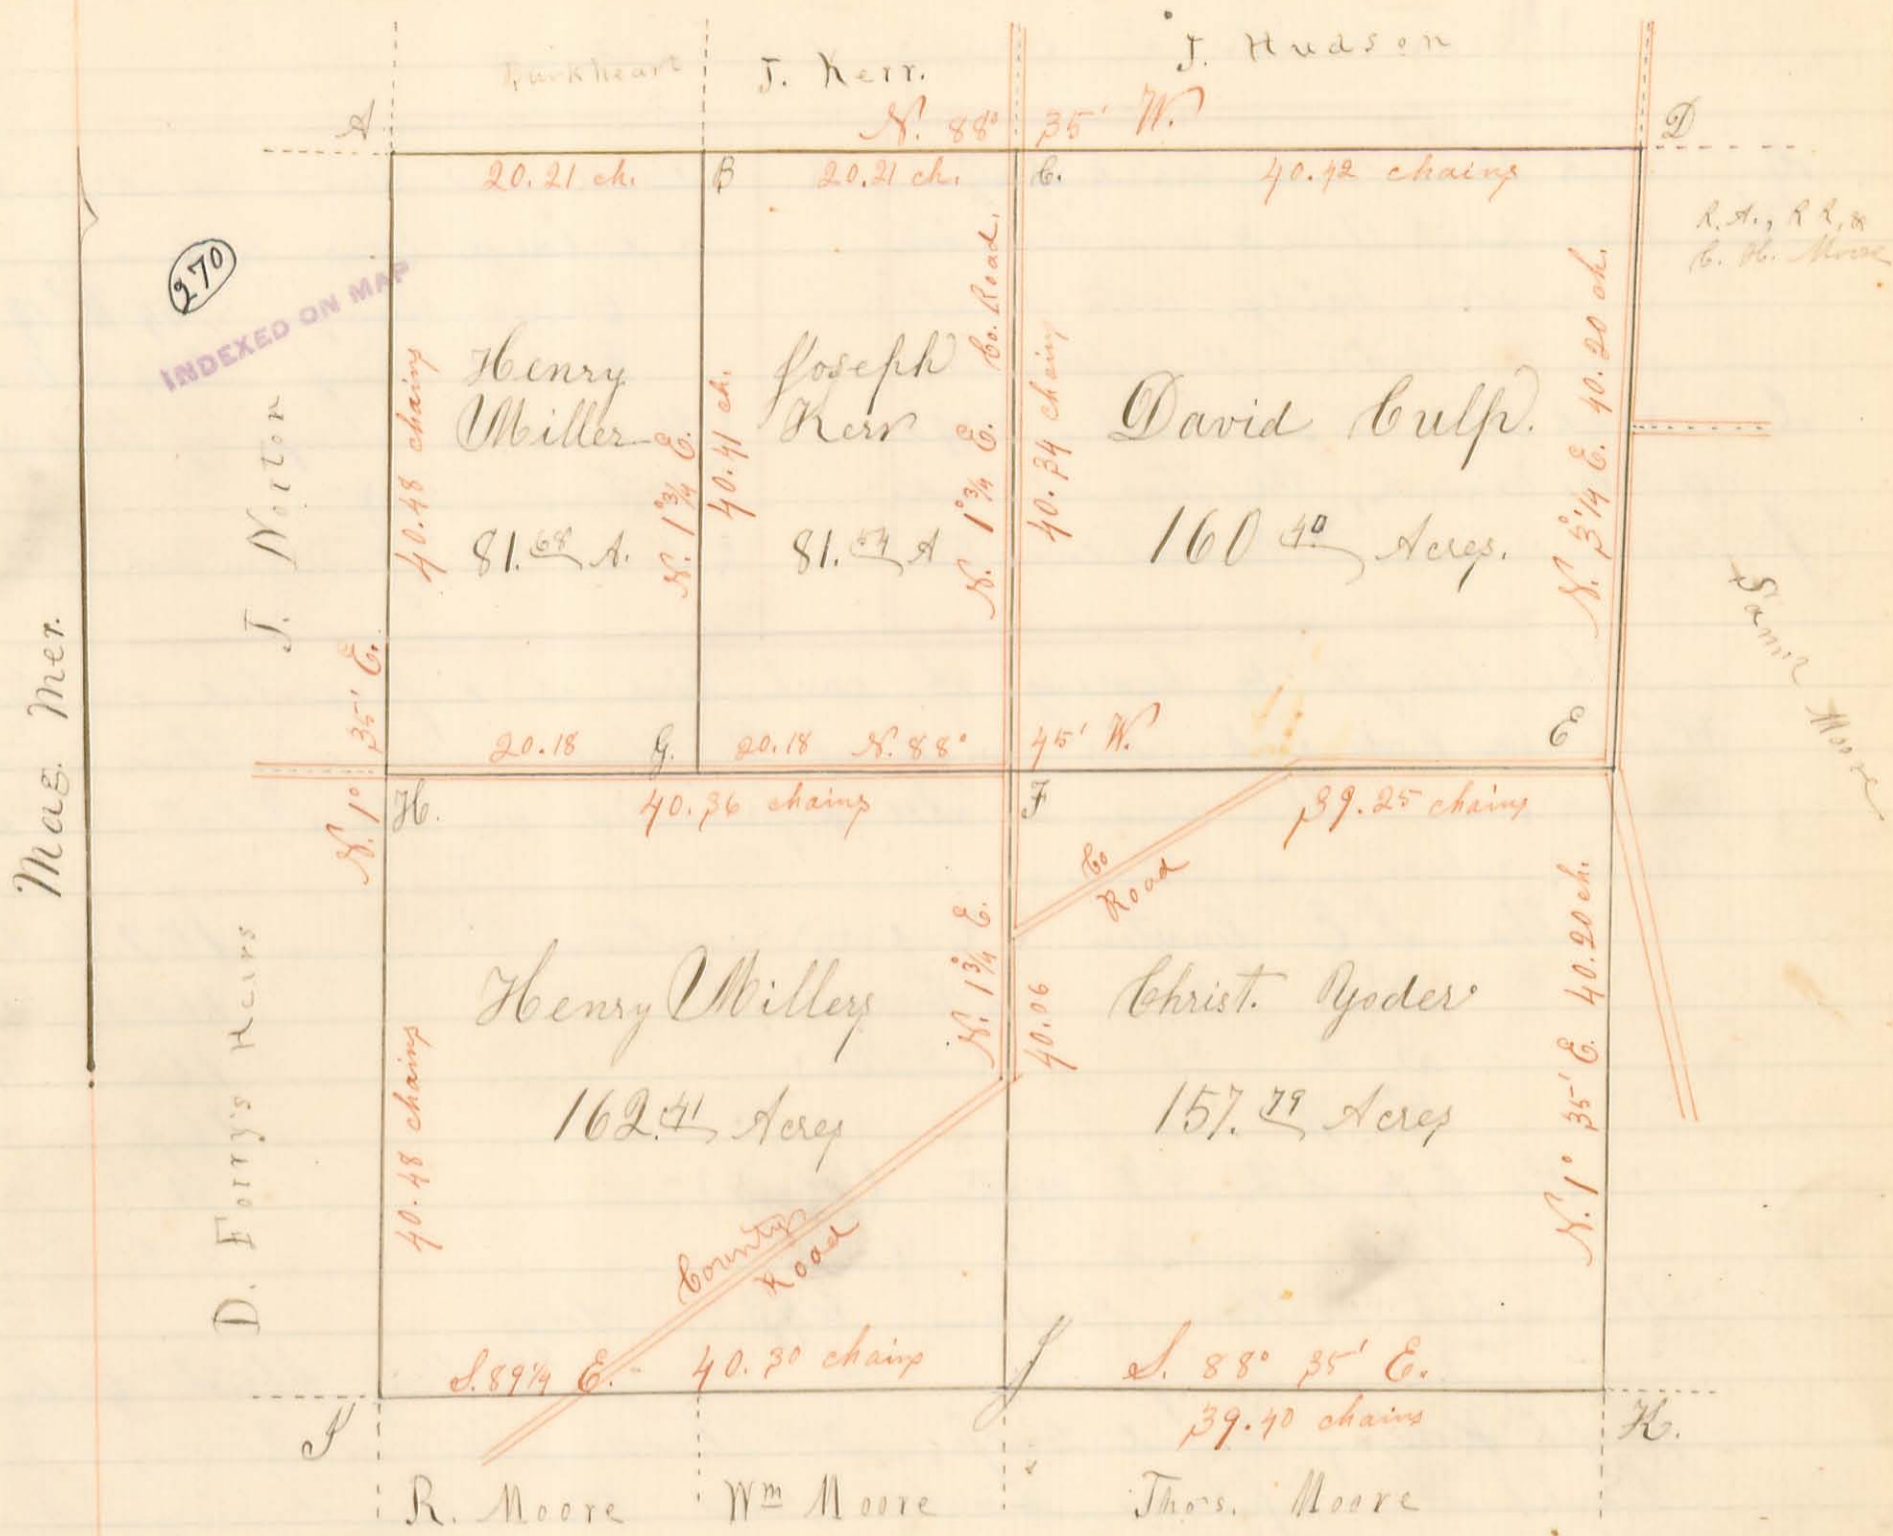 Burkheart
J. Kerr.
J. Hudson
A
N. 88° 35' W.
D
20.21 ch.
B
20.21 ch.
C.
40.42 chains
R. A., R R, &
C. H. Moore
270
INDEXED ON MAP
J. Norton
40.48 chains
Henry
Miller
81.68 A.
N. 1°3/4 E.
40.41 ch.
Joseph
Kerr
81.54 A
N. 1°3/4 E. Co. Road.
40.34 chains
David Culp.
160 40 Acres.
40.20 ch.
Mag. Mer.
N. 1° 35' E.
20.18
G.
20.18 N. 88° 45' W.
E
Moore
H.
40.36 chains
F
39.25 chains
Co
Road
D. Forry's Heirs
40.48 chains
Henry Millers
162.41 Acres
N. 1°3/4 E.
40.06
Christ. Yoder
157.79 Acres
N. 1° 35' E. 40.20 ch.
County
Road
S. 89 1/4 E. - 40.30 chains
J
S. 88° 35' E.
39.40 chains
I
K.
R. Moore
Wm Moore
Thos. Moore